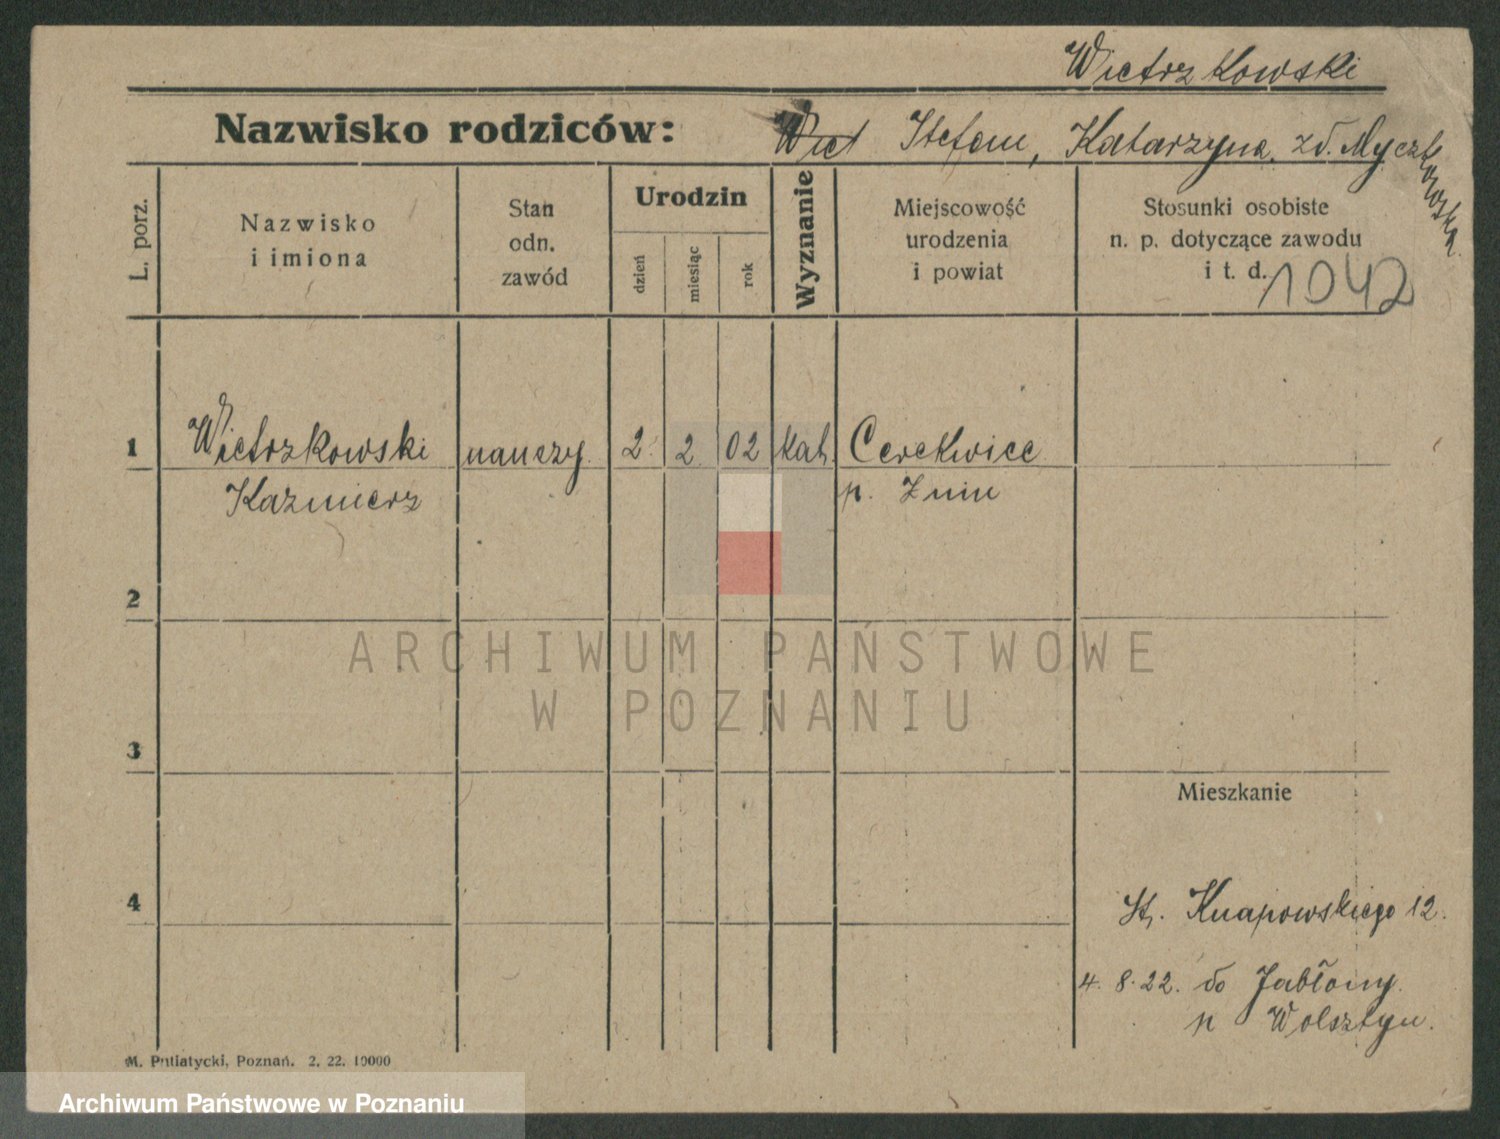 Wietrzkowski
Nazwisko rodziców: Wiet Stefan, Katarzyna zd. Myczkowska
L. porz.
Nazwisko
i imiona
Stan
odn.
zawód
Urodzin
dzień
miesiąc
rok
Wyznanie
Miejscowość
urodzenia
i powiat
Stosunki osobiste
n. p. dotyczące zawodu
i t. d. 1042
1 Wietrzkowski nauczy. 2. 2. 02 kat. Cerekwice
Kazmierz p. Żnin
2
ARCHIWUM PAŃSTWOWE
W POZNANIU
3
Mieszkanie
4 St. Knapowskiego 12.
4. 8. 22. do Jabłony.
p Wolsztyn.
M. Putiatycki, Poznań. 2. 22. 10000
Archiwum Państwowe w Poznaniu